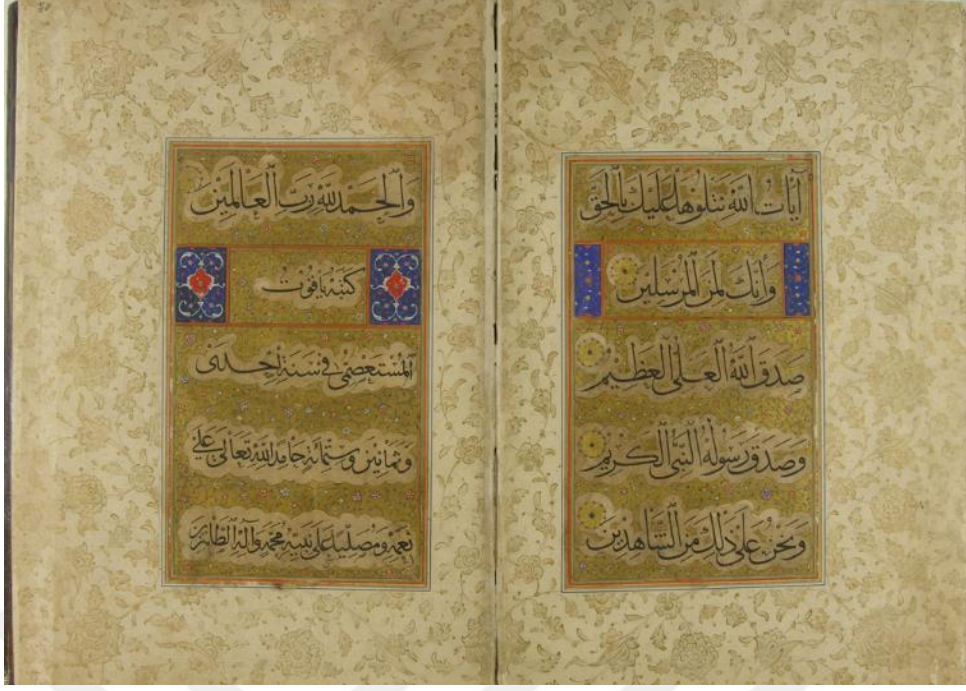 آيَاتُ اللهِ نَتْلُوهَا عَلَيْكَ بِالْحَقِّ
وَأَنَّكَ لَمِنَ الْمُرْسَلِينَ
صَدَقَ اللهُ الْعَلِيُّ الْعَظِيمُ
وَصَدَقَ رَسُولُهُ النَّبِيُّ الْكَرِيمُ
وَنَحْنُ عَلَى ذَلِكَ مِنَ الشَّاهِدِينَ
وَالْحَمْدُ لِلهِ رَبِّ الْعَالَمِينَ
كتبه ياقوت
المستعصمي في سنة احدى
وثمانين وستمائة حامدا لله تعالى على
نعمه ومصليا على نبيه محمد وآله الطاهرين